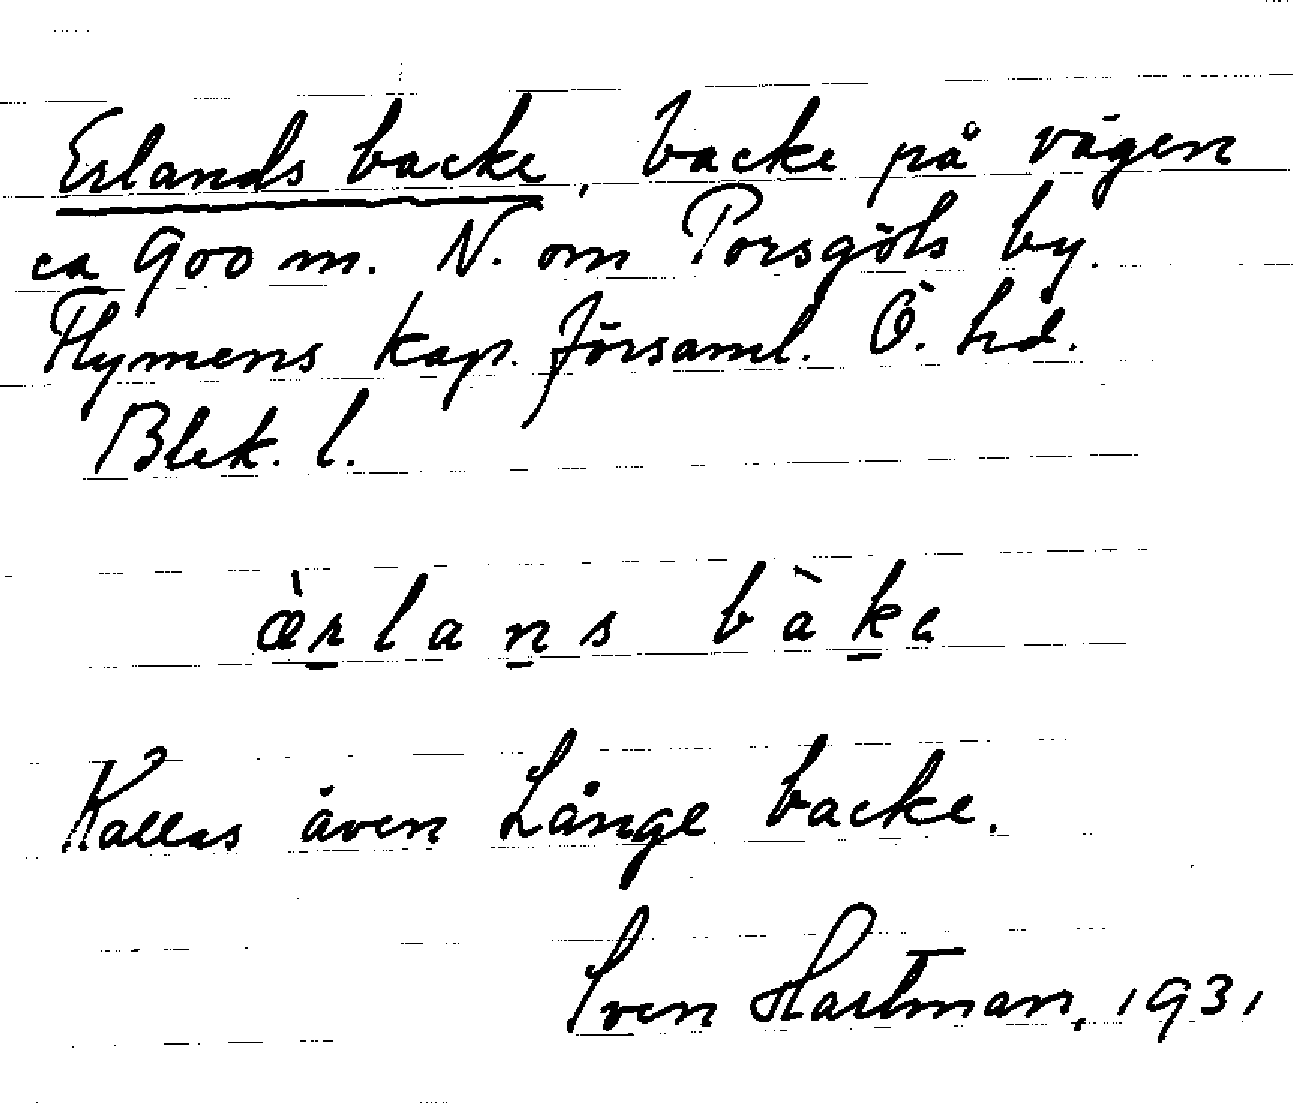 Erlands backe, backe på vägen
ca 900 m. N. om Porsgöls by.
Flymens kap. församl. Ö. hd.
Blek. l.
æ̀r̲lan̲s bàk̲e
Kallas även Långe backe.
Sven Hartman, 1931